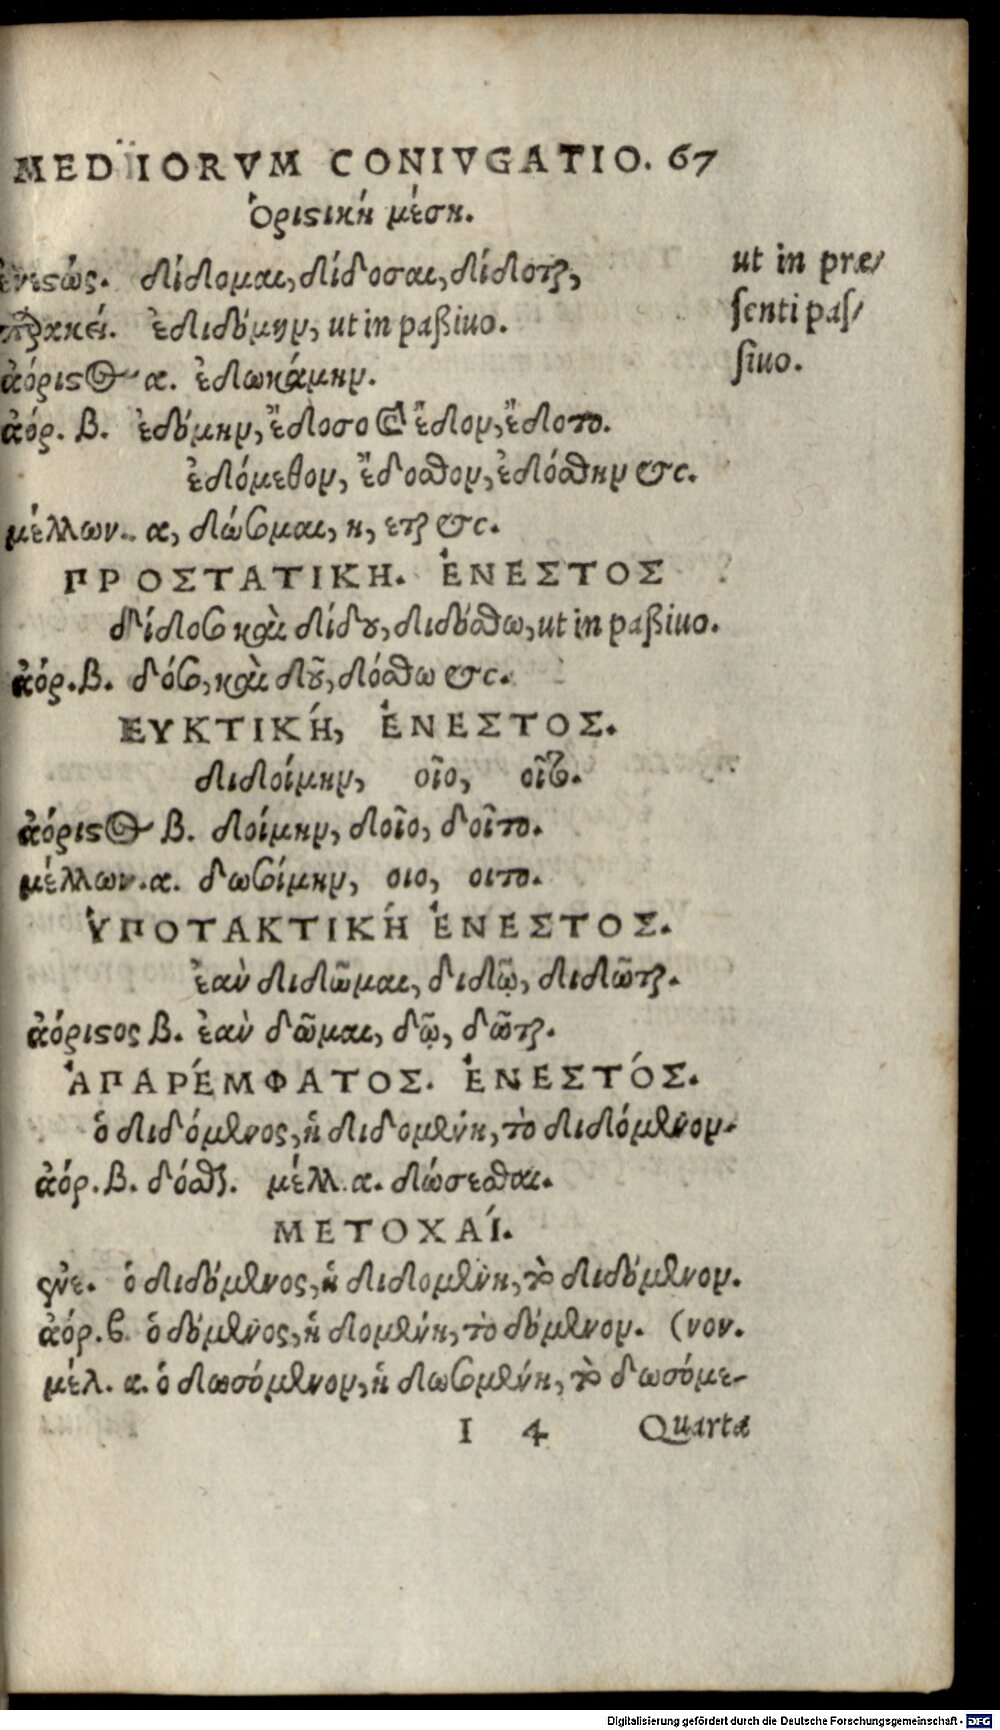 MEDIORVM CONIVGATIO. 67
Ὁριστικὴ μέση.
ἐνεστώς. δίδομαι, δίδοσαι, δίδοται,
ut in præ/
παρακεί. ἐδιδόμην, ut in paßiuo.
senti pas/
siuo.
ἀόριστος α. ἐδωκάμην.
ἀόρ. β. ἐδόμην, ἔδοσο & ἔδου, ἔδοτο.
ἐδόμεθον, ἔδοσθον, ἐδόσθην &c.
μέλλων. α, δώσομαι, η, εται &c.
ΠΡΟΣΤΑΤΙΚΗ. ἘΝΕΣΤΟΣ
δίδοσο καὶ δίδου, διδόσθω, ut in paßiuo.
ἀόρ. β. δόσο, καὶ δοῦ, δόσθω &c.
ΕΥΚΤΙΚΉ, ἘΝΕΣΤΟΣ.
διδοίμην, οῖο, οῖτο.
ἀόριστος β. δοίμην, δοῖο, δοῖτο.
μέλλων. α. δωσοίμην, οιο, οιτο.
ὙΠΟΤΑΚΤΙΚΉ ἘΝΕΣΤΟΣ.
ἐὰν διδῶμαι, διδῷ, διδῶται.
ἀόριστος β. ἐὰν δῶμαι, δῷ, δῶται.
ἈΠΑΡΈΜΦΑΤΟΣ. ἘΝΕΣΤΌΣ.
ὁ διδόμενος, ἡ διδομένη, τὸ διδόμενον.
ἀόρ. β. δόσθαι. μέλλ. α. δώσεσθαι.
ΜΕΤΟΧΑΊ.
ὁ διδόμενος, ἡ διδομένη, τὸ διδόμενον.
ἀόρ. β. ὁ δόμενος, ἡ δομένη, τὸ δόμενον. (νον.
μέλ. α. ὁ δωσόμενον, ἡ δωσομένη, τὸ δωσόμε-
I 4 Quartæ
Digitalisierung gefördert durch die Deutsche Forschungsgemeinschaft - DFG